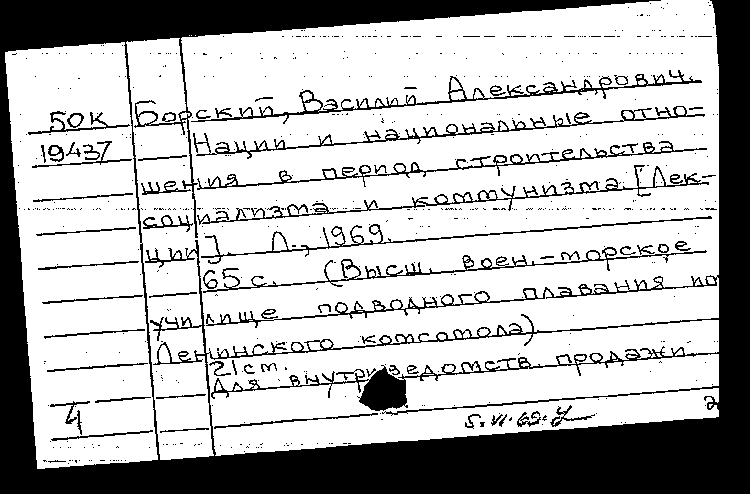 50К Борский, Василий Александрович.
19437 Нации и национальные отно-
шения в период строительства
социализма и коммунизма. [Лек-
ции]. Л., 1969.
65 с. (Высш. воен.-морское
училище подводного плавания
Ленинского комсомола)
21см.
Для внутриведомств. продажи.
4